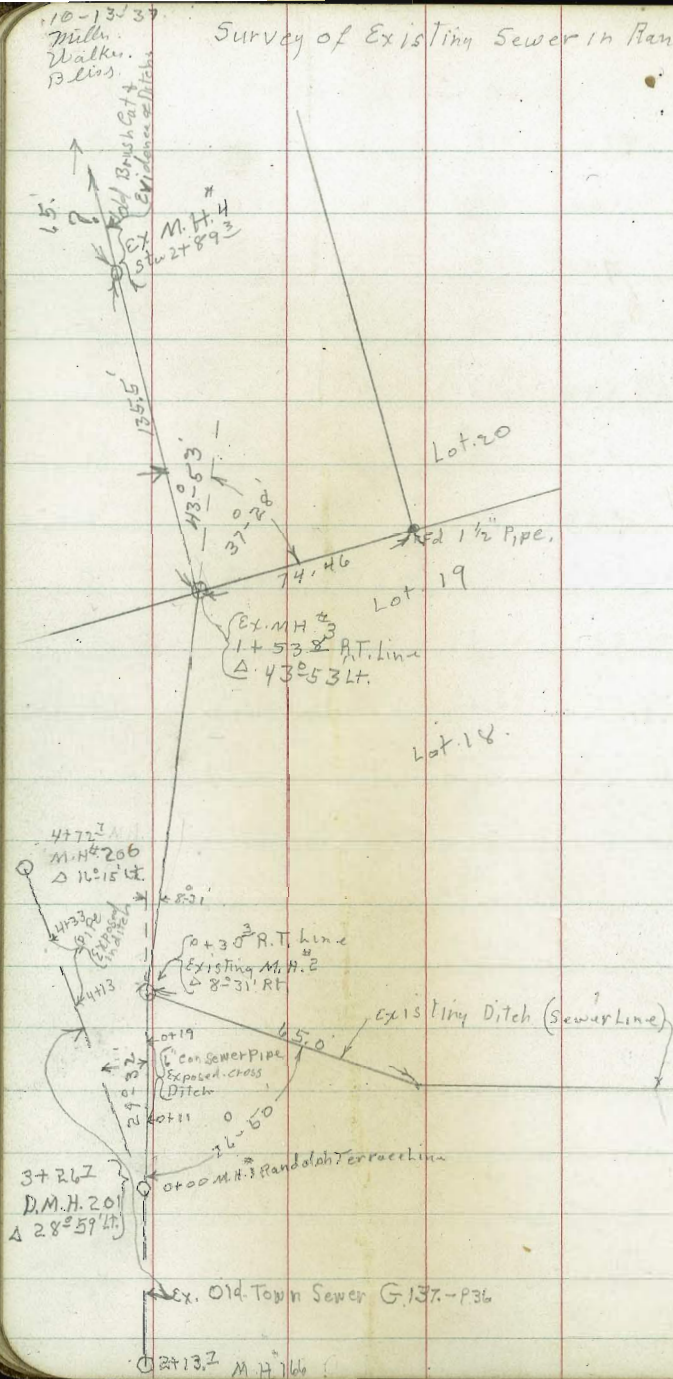 10-13-37
Survey of Existing Sewer in Ran
Miller.
Walker.
Bliss.
Old Brush Cut &
Evidence of Ditch
65'
?
Ex M.H. #4
Sta 2+89 3
135.5'
43°-53'
37°-28'
74.46
Lot 20
Fd 1 1/2" Pipe.
Lot 19
Ex. M.H. #3
1+53 8 R.T. Line
Δ 43°-53 Lt.
Lot 18.
4+72 7
M.H.# 206
Δ 16°-15' Lt.
8°-31'
4+33
Pipe
Exposed
in ditch
4+13
0+30 3 R.T. Line
Existing M.H. #2
Δ 8°-31' Rt
Existing Ditch (Sewer Line)
?
65.0'
0+19
6" con sewer pipe
Exposed cross
Ditch
29°-32
0+11
0+00 M.H. Randolph Terrace Line
3+26 7
D.M.H. 201
Δ 28°-59' Lt.
Ex. Old Town Sewer G.137.-P36
2+13.7 M.H# 166